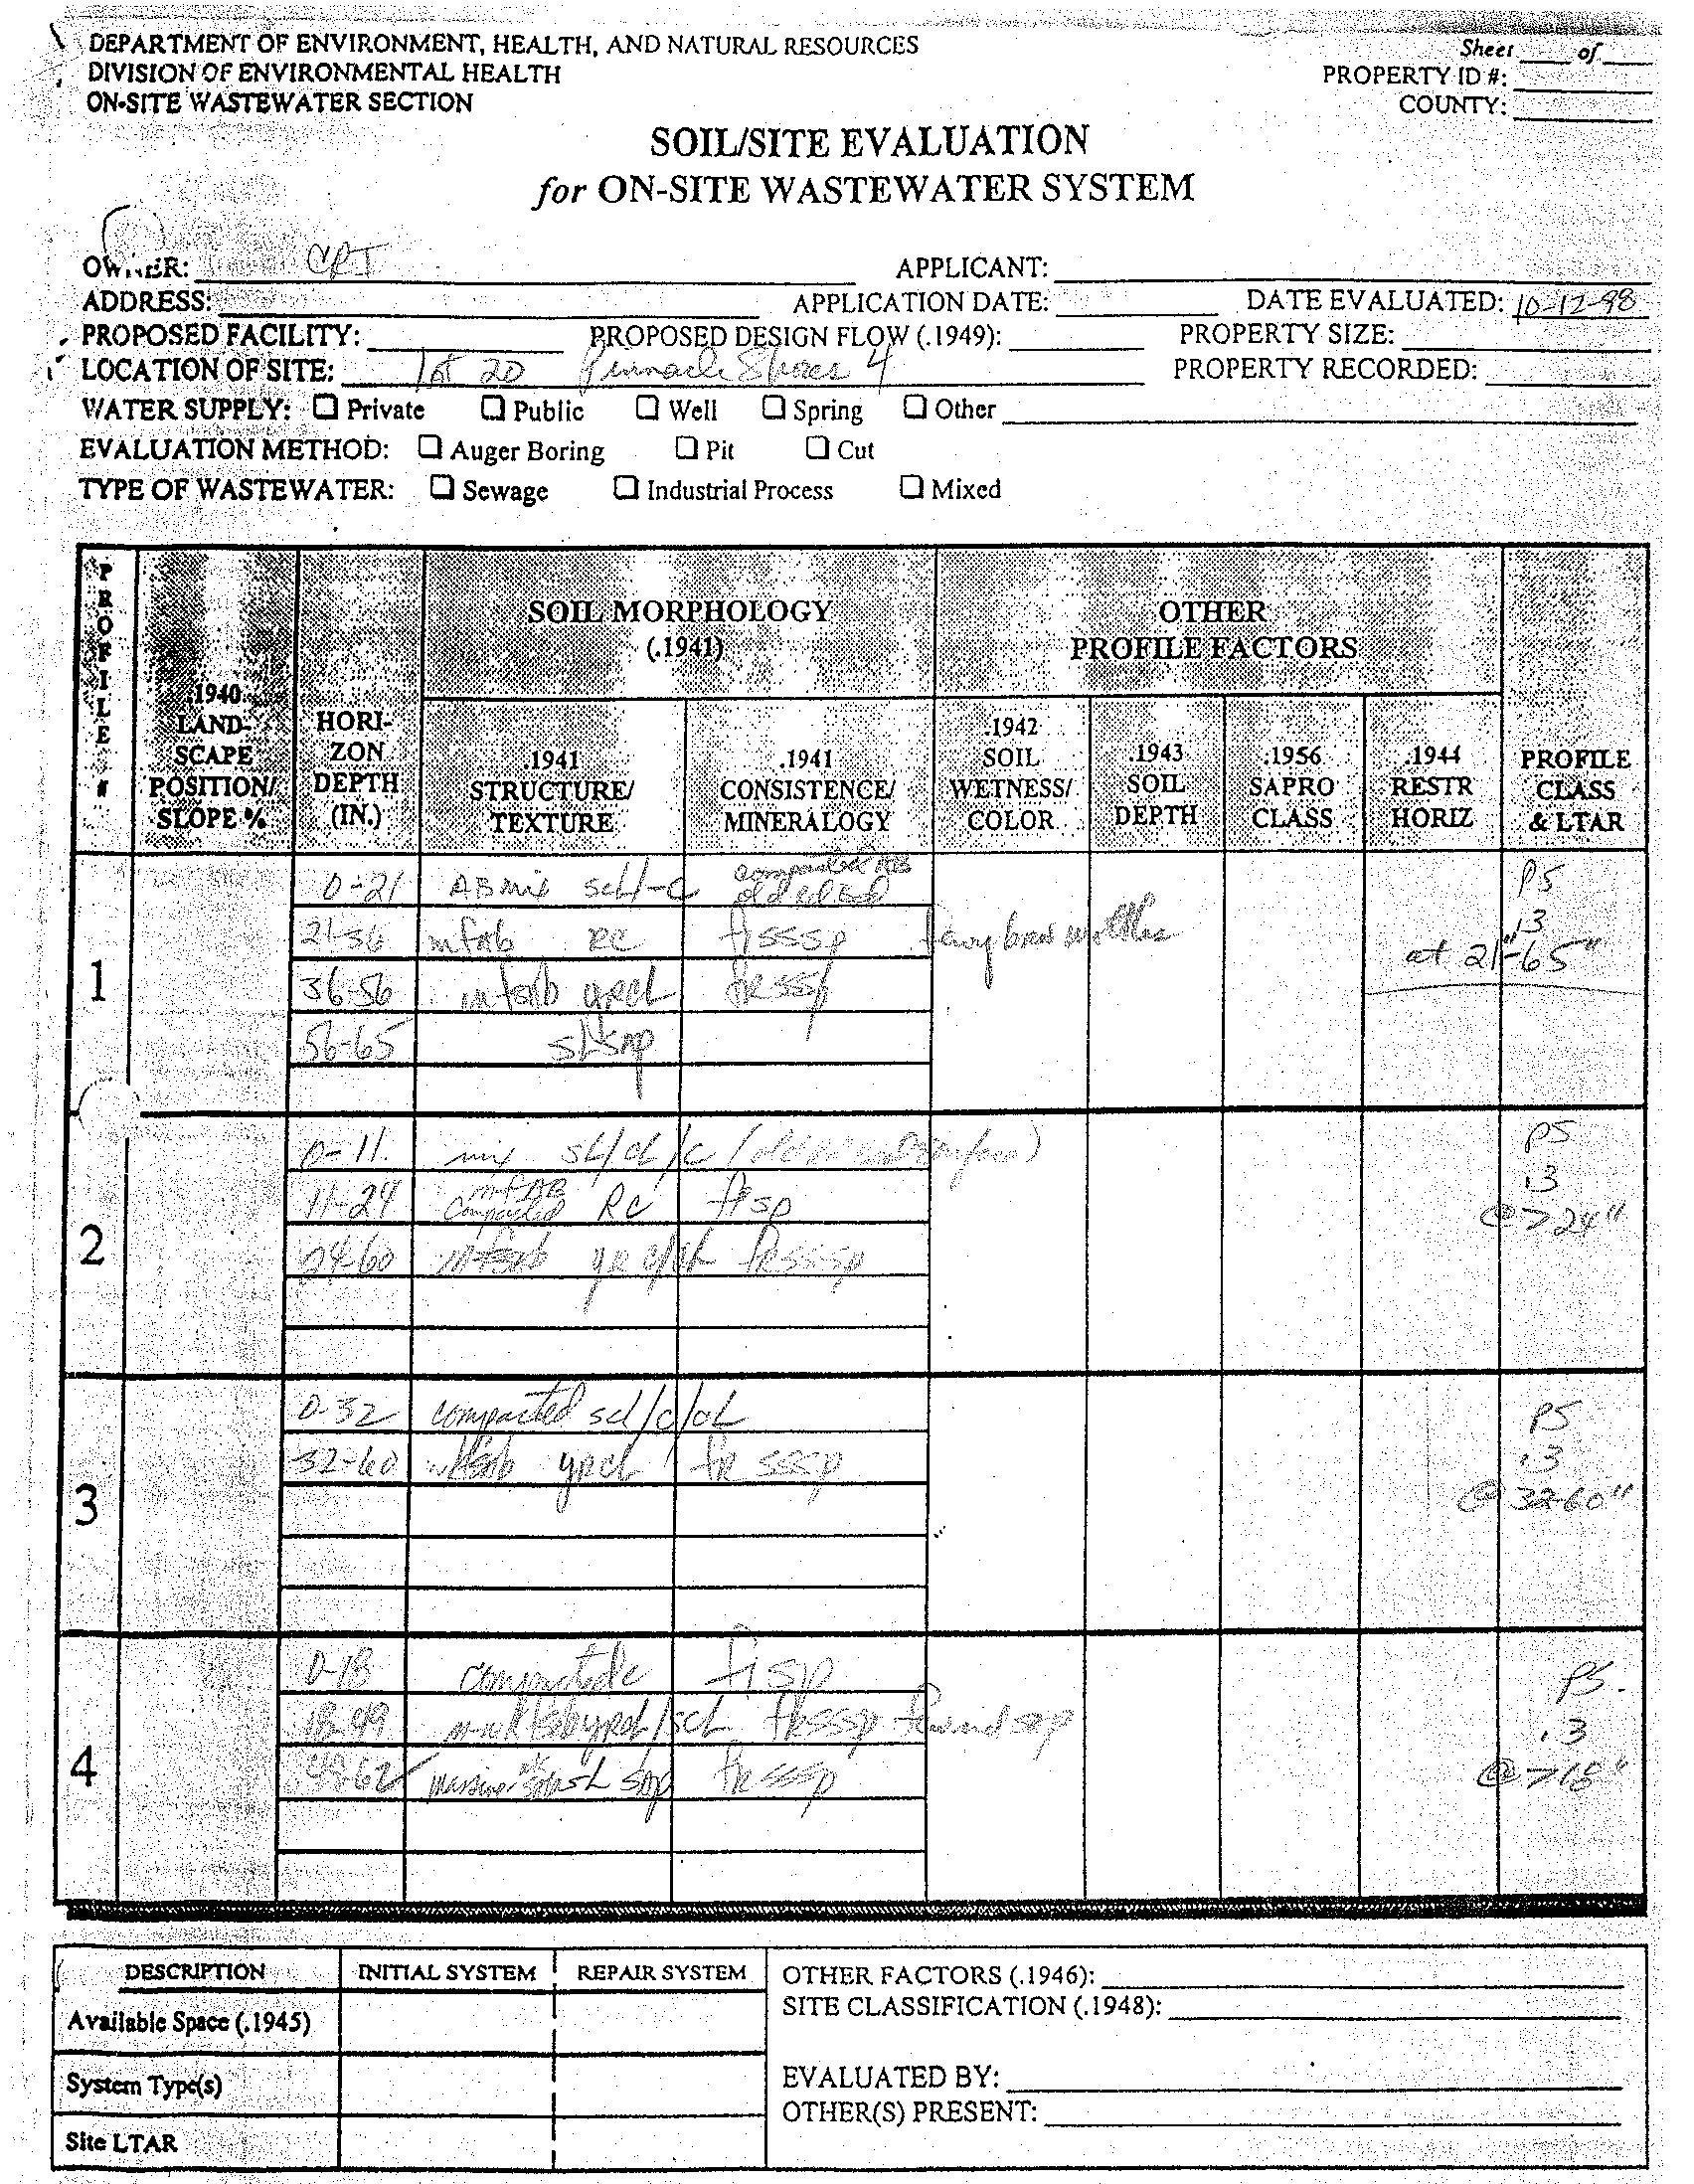 DEPARTMENT OF ENVIRONMENT, HEALTH, AND NATURAL RESOURCES
DIVISION OF ENVIRONMENTAL HEALTH
ON-SITE WASTEWATER SECTION
Sheet ____ of ____
PROPERTY ID #:
COUNTY:
SOIL/SITE EVALUATION
for ON-SITE WASTEWATER SYSTEM
OWNER: CRT APPLICANT:
ADDRESS: APPLICATION DATE: DATE EVALUATED: 10-12-98
PROPOSED FACILITY: PROPOSED DESIGN FLOW (.1949): PROPERTY SIZE:
LOCATION OF SITE: lot 20 Pinnacle Shores 4 PROPERTY RECORDED:
WATER SUPPLY: ☐ Private ☐ Public ☐ Well ☐ Spring ☐ Other
EVALUATION METHOD: ☐ Auger Boring ☐ Pit ☐ Cut
TYPE OF WASTEWATER: ☐ Sewage ☐ Industrial Process ☐ Mixed
PROFILE #
.1940 LAND-SCAPE POSITION/ SLOPE %
HORI-ZON DEPTH (IN.)
SOIL MORPHOLOGY (.1941)
OTHER PROFILE FACTORS
.1941 STRUCTURE/ TEXTURE
.1941 CONSISTENCE/ MINERALOGY
.1942 SOIL WETNESS/ COLOR
.1943 SOIL DEPTH
.1956 SAPRO CLASS
.1944 RESTR HORIZ
PROFILE CLASS & LTAR
1
0-21 AB mix scl/-c compacted old
PS
21-36 mfsb RC fisssp
.3
at 21"-65"
36-56 mfsb yrcl frsssp
56-65 sl sap
2
0-11 mix sl/cl/c (old
PS
11-24 compacted RC fisp
.3
@ >24"
24-60 mfsb yr c/cl frsssp
3
0-32 compacted scl/c/cl
PS
32-60 yrcl fr sssp
.3
@ 32-60"
4
0-18 compacted c fisp
PS.
18-49 /scl frsssp sap
.3
49-62 massive sl sap fr sssp
@ >18"
DESCRIPTION INITIAL SYSTEM REPAIR SYSTEM
Available Space (.1945)
System Type(s)
Site LTAR
OTHER FACTORS (.1946):
SITE CLASSIFICATION (.1948):
EVALUATED BY:
OTHER(S) PRESENT: